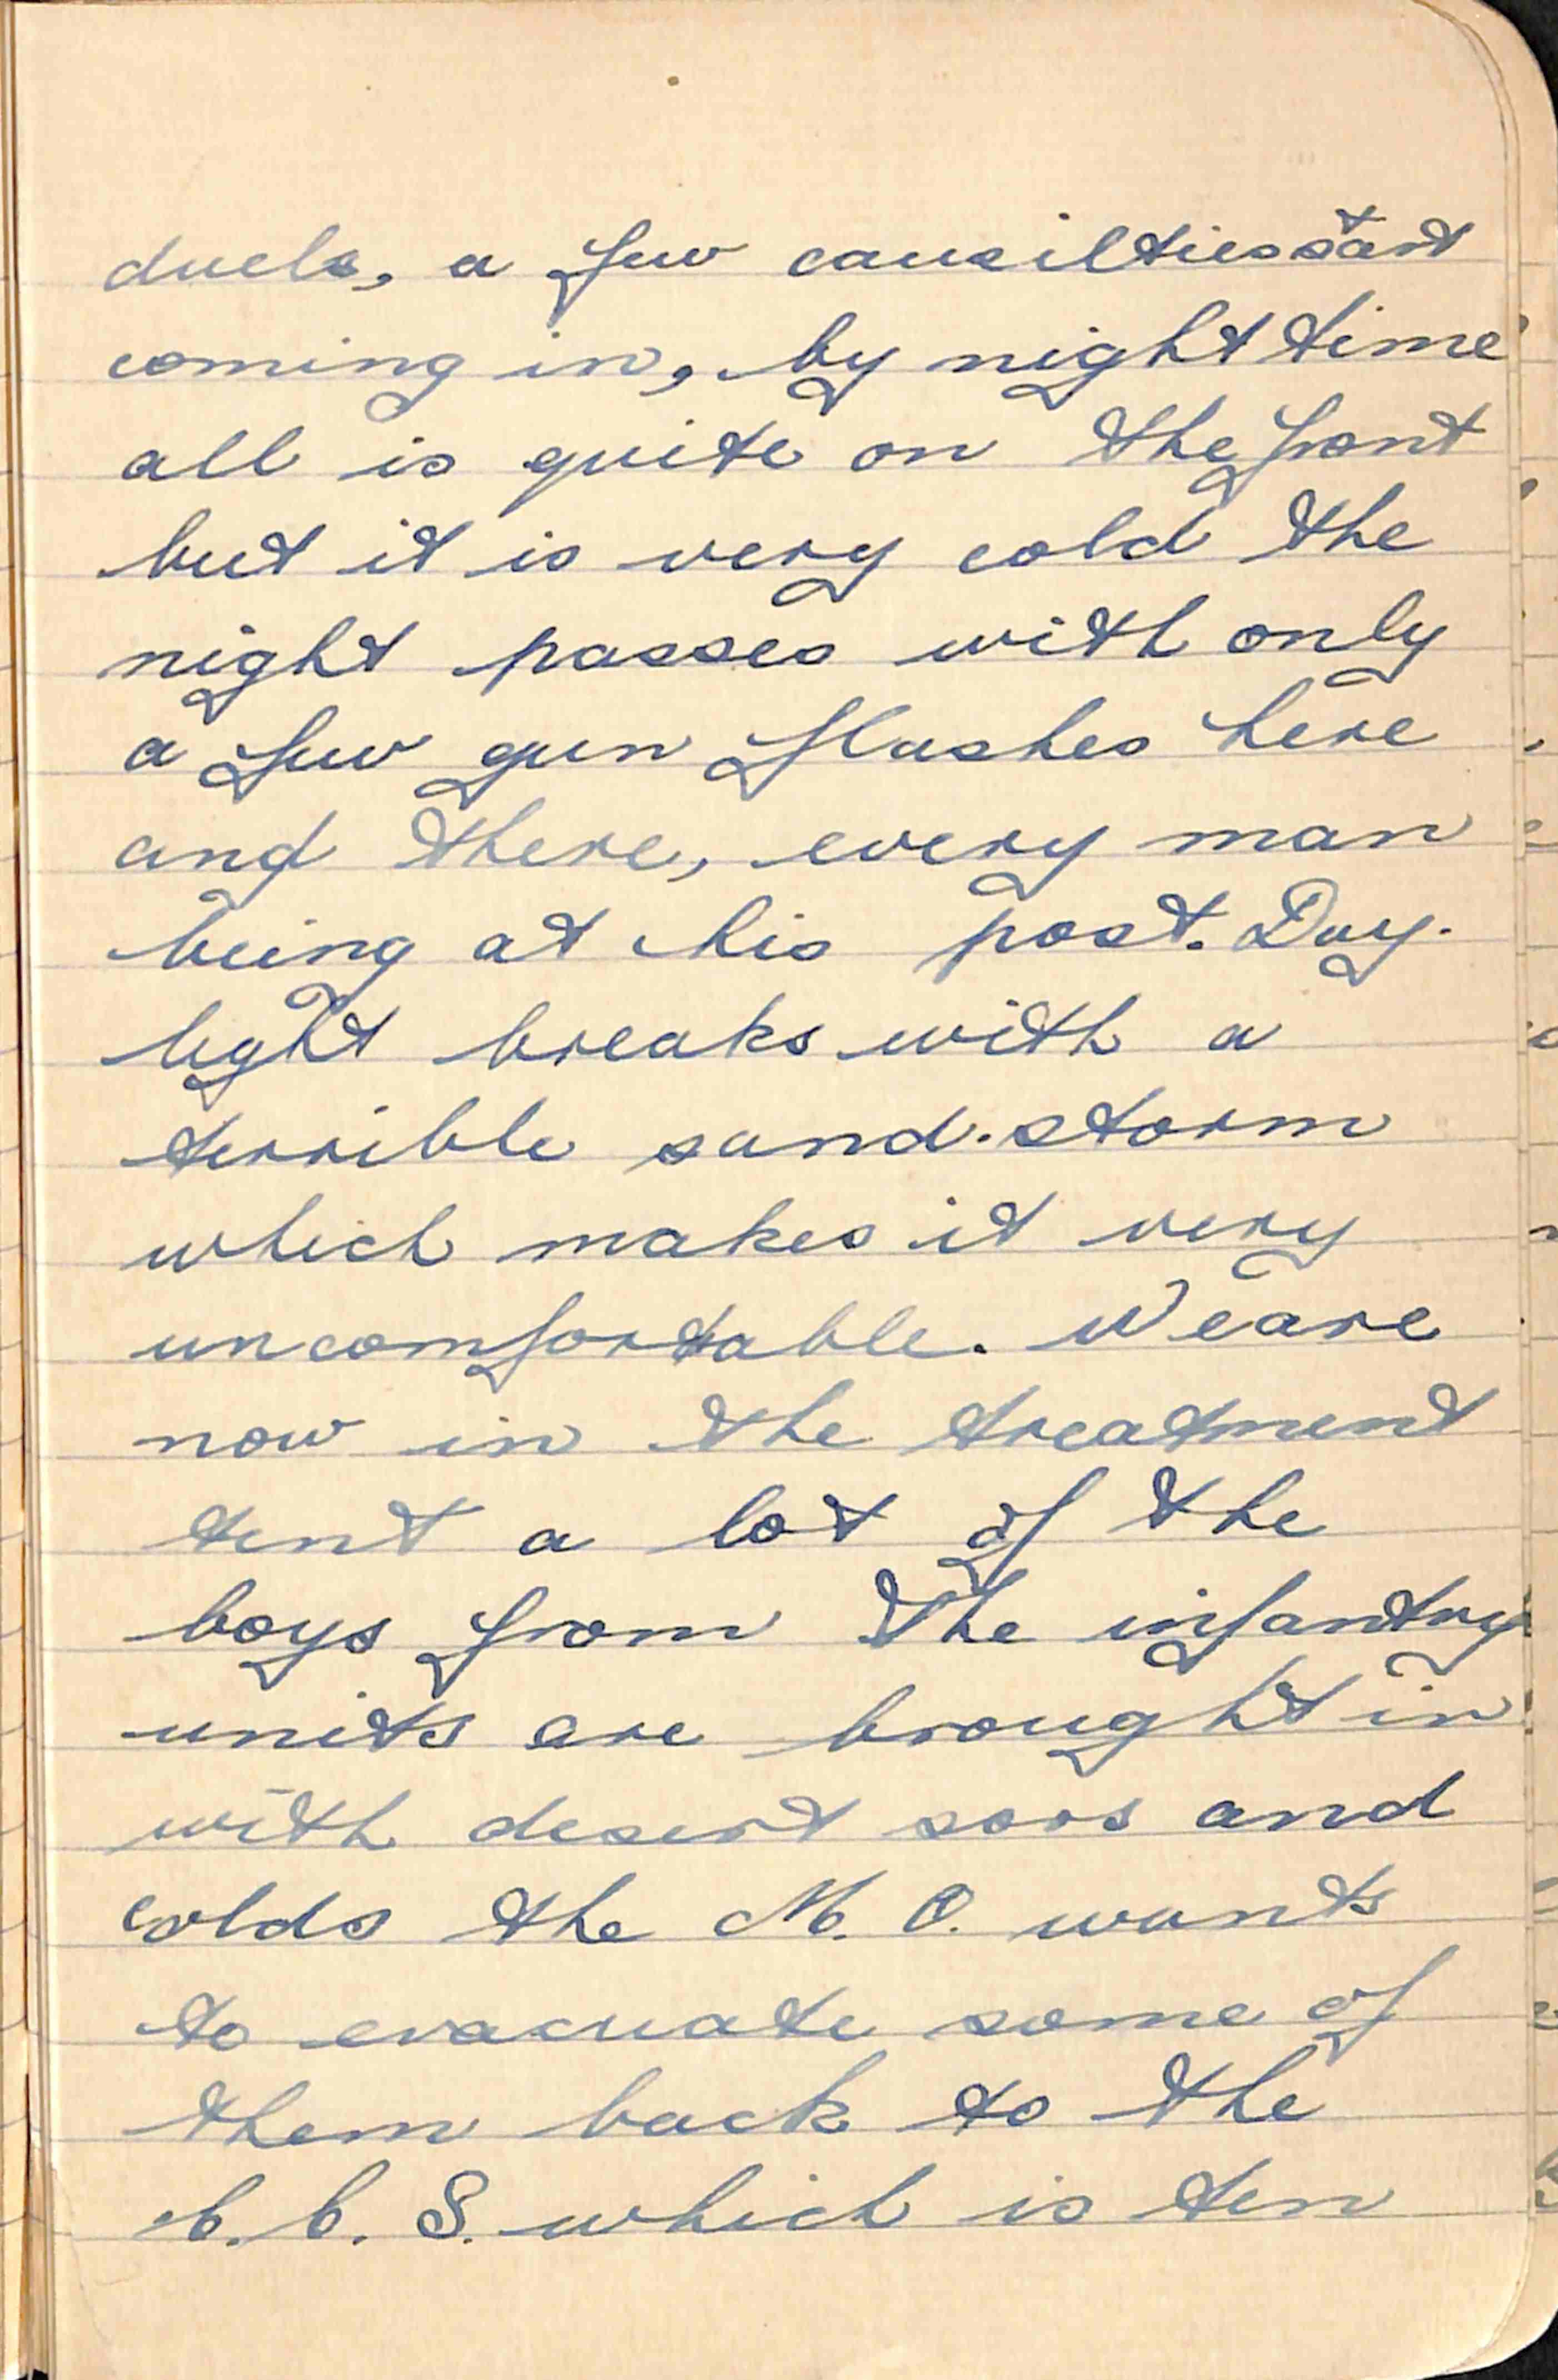 duels, a few causilties start
coming in, by night time
all is quite on the front
but it is very cold the
night passes with only
a few gun flashes here
and there, every man
being at his post. Day-
light breaks with a
terrible sand-storm
which makes it very
uncomfortable. We are
now in the treatment
tent a lot of the
boys from the infantry
units are brought in
with desert sors and
colds the M.O. wants
to evacuate some of
them back to the
C.C.S. which is ten